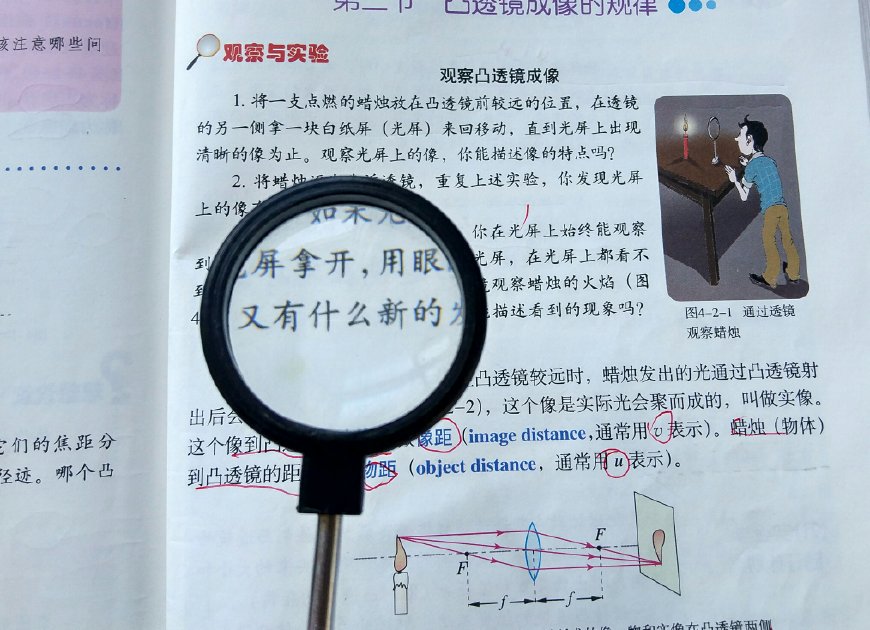 该注意哪些问
它们的焦距分
径迹。哪个凸
凸透镜成像的规律
观察与实验
观察凸透镜成像
1. 将一支点燃的蜡烛放在凸透镜前较远的位置，在透镜
的另一侧拿一块白纸屏（光屏）来回移动，直到光屏上出现
清晰的像为止。观察光屏上的像，你能描述像的特点吗？
2. 将蜡烛 透镜，重复上述实验，你发现光屏
上的像
如果 你在光屏上始终能观察
到 屏拿开，用眼 光屏，在光屏上都看不
到 观察蜡烛的火焰（图
4 又有什么新的 描述看到的现象吗？
图4-2-1 通过透镜
观察蜡烛
凸透镜较远时，蜡烛发出的光通过凸透镜射
出后会 -2），这个像是实际光会聚而成的，叫做实像。
这个像到凸 像距（image distance,通常用 v 表示）。蜡烛（物体）
到凸透镜的距 物距（object distance，通常用 u 表示）。
F
F
f
f